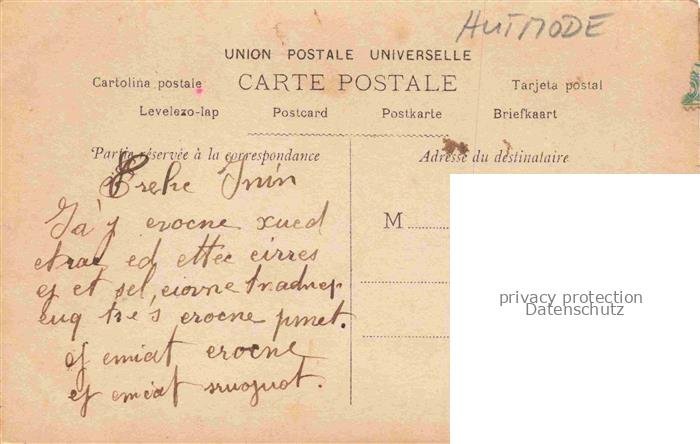 HUTMODE
UNION POSTALE UNIVERSELLE
Cartolina postale CARTE POSTALE Tarjeta postal
Levelezo-lap Postcard Postkarte Briefkaart
Partie réservée à la correspondance
Adresse du destinataire
Erehc Inin
Ia'j erocne xued
etrac ed ettec eirres
ej et sel eiovne tnadnep
euq erocne pmet.
ej emiat erocne
ej emiat sruojuot.
M
privacy protection
Datenschutz